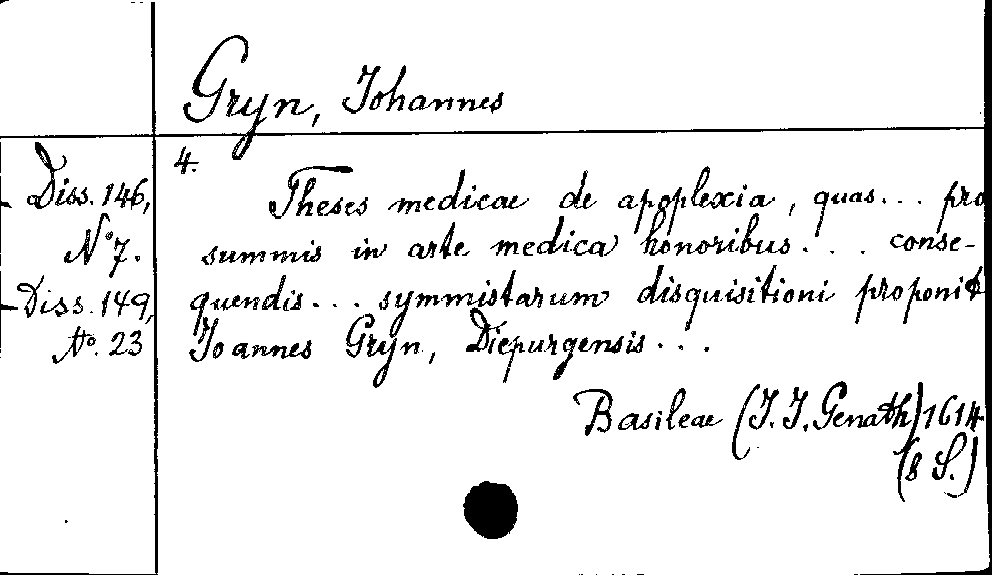 Gryn, Johannes
4.
Diss. 146,
No 7.
Diss. 149,
No. 23
Theses medicae de apoplexia, quas... pro
summis in arte medica honoribus... conse-
quendis... symmistarum disquisitioni proponit
Joannes Gryn, Diepurgensis...
Basileae (J. J. Genath) 1614
(8 S.)